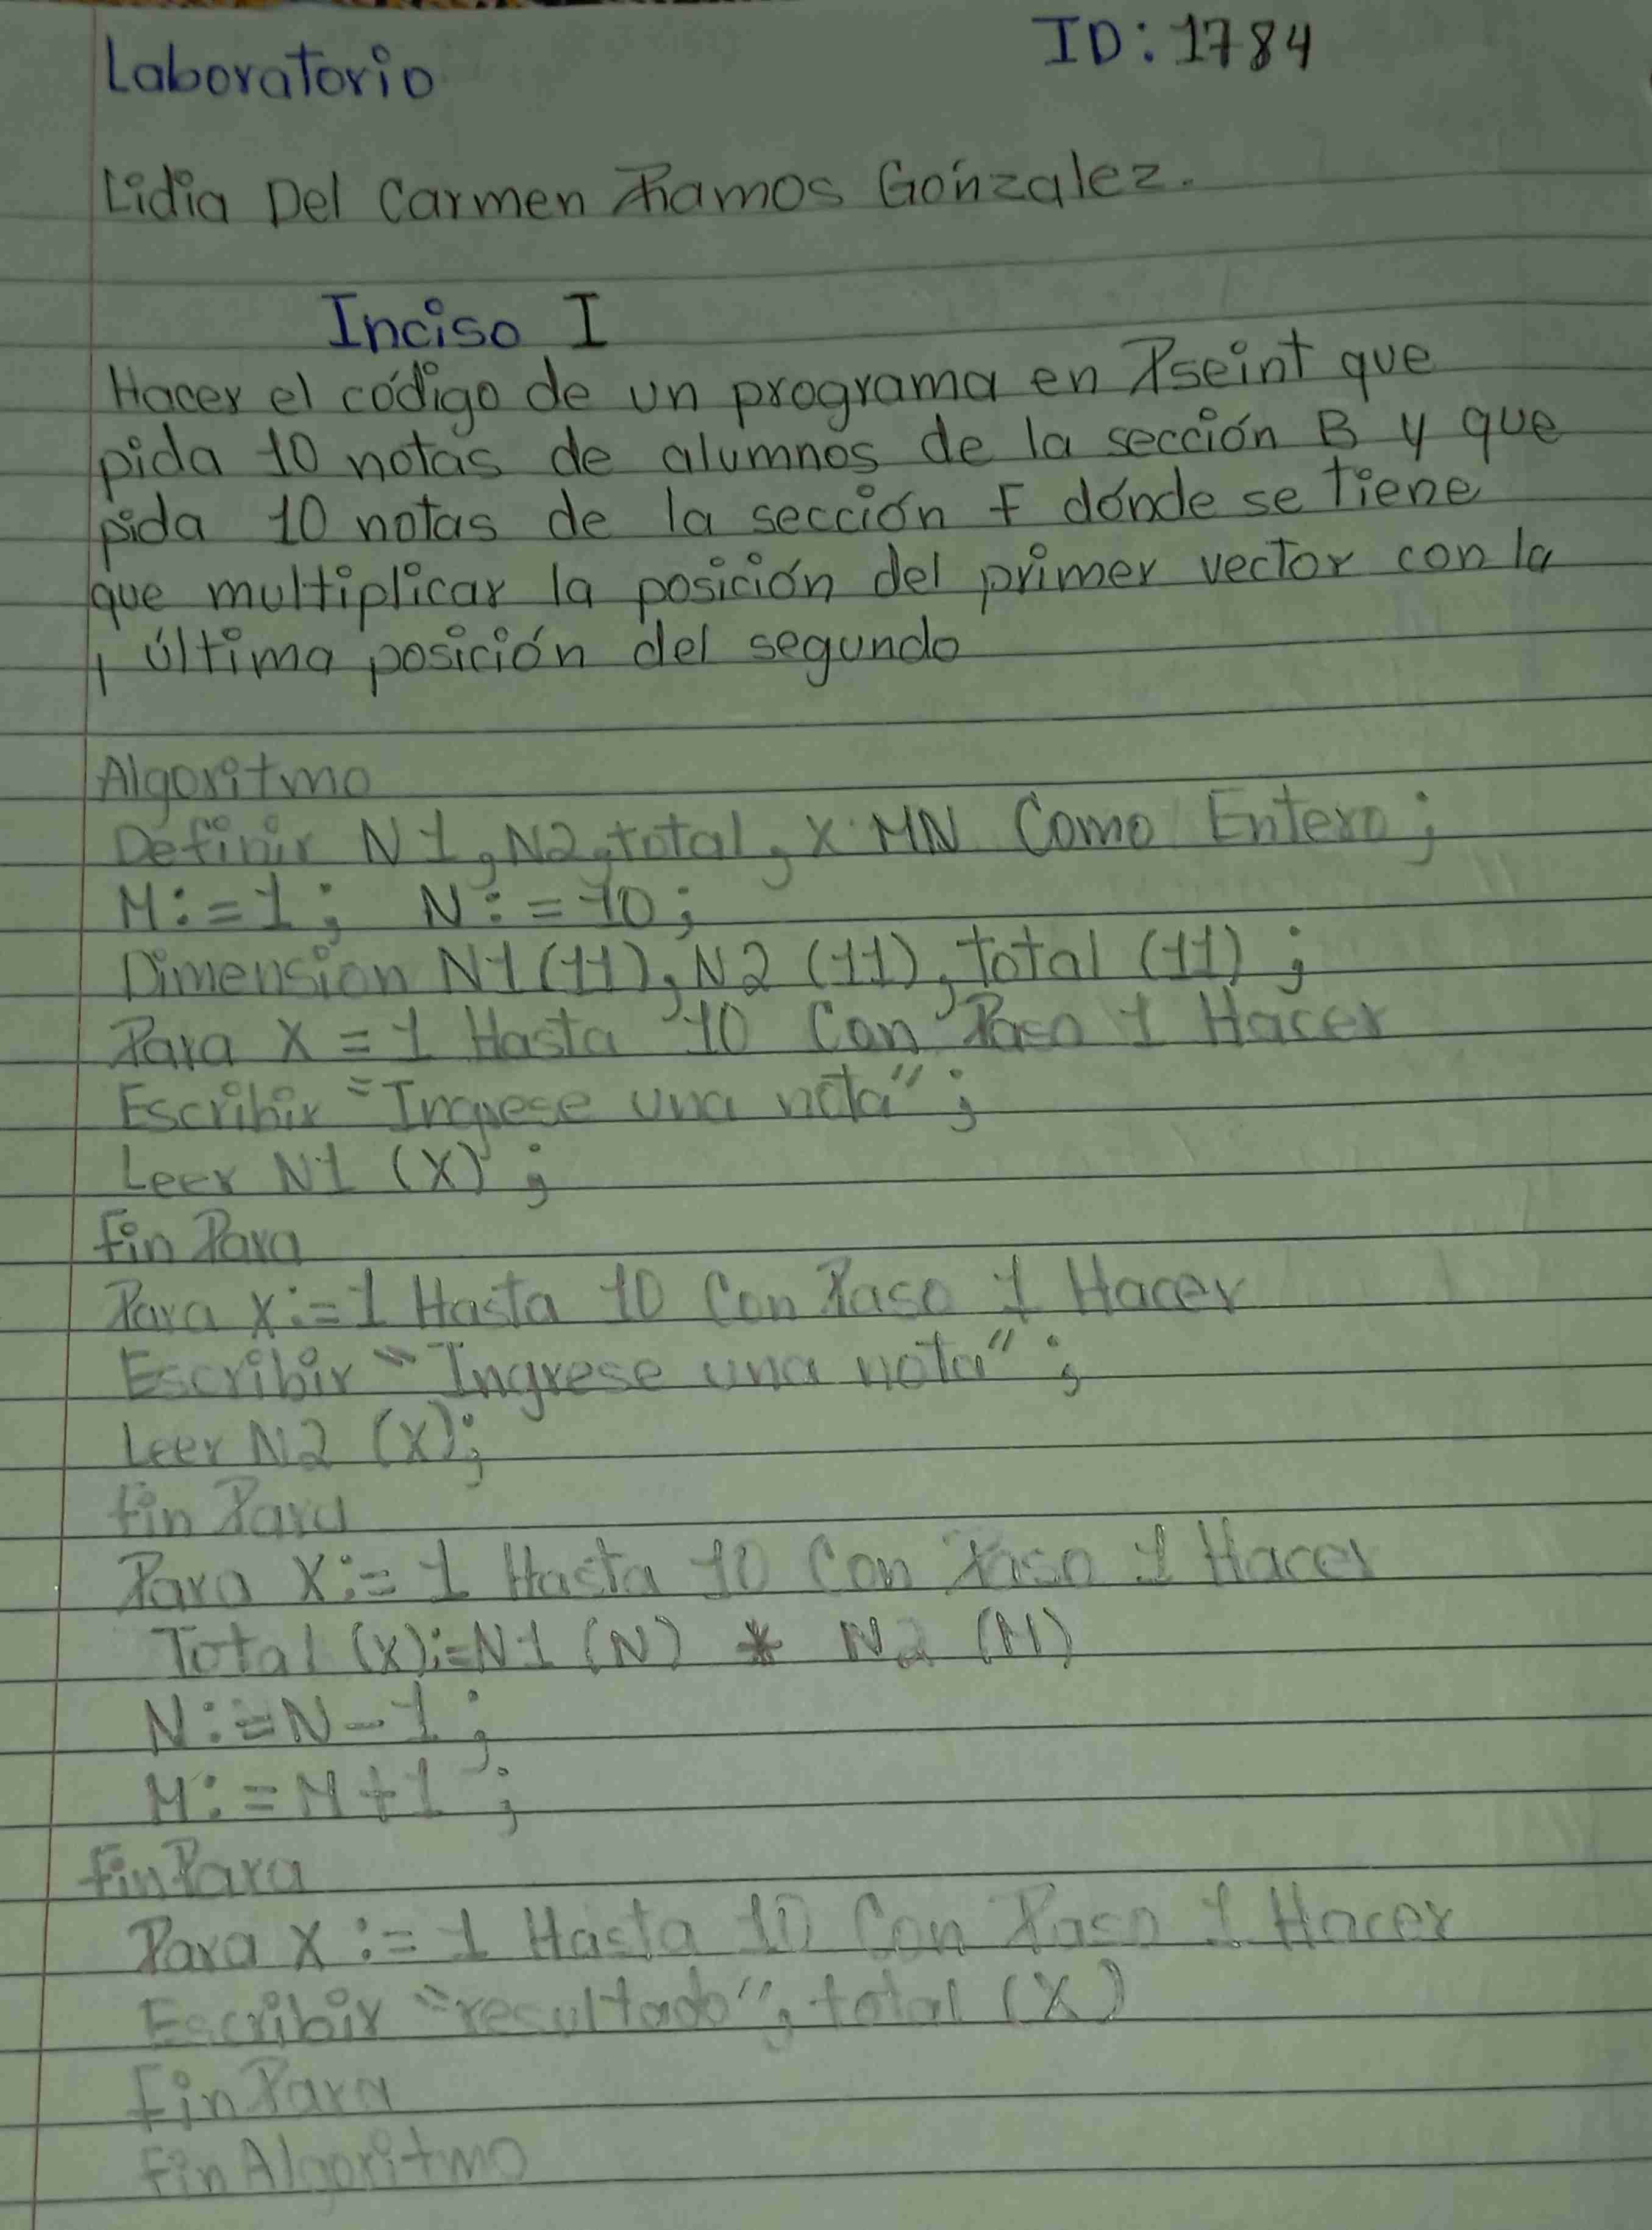 Laboratorio
ID: 1784
Lidia Del Carmen Ramos González.
Inciso I
Hacer el código de un programa en Pseint que
pida 10 notas de alumnos de la sección B y que
pida 10 notas de la sección F dónde se tiene
que multiplicar la posición del primer vector con la
última posición del segundo
Algoritmo
Definir N1, N2, total, X MN Como Entero;
M:=1; N:=10;
Dimension N1(11), N2(11), total (11);
Para X = 1 Hasta 10 Con Paso 1 Hacer
Escribir "Ingrese una nota";
Leer N1 (X);
fin Para
Para X:=1 Hasta 10 Con Paso 1 Hacer
Escribir "Ingrese una nota";
Leer N2 (X);
fin Para
Para X:= 1 Hasta 10 Con Paso 1 Hacer
Total (X):=N1 (N) * N2 (M)
N:=N-1;
M:=M+1;
fin Para
Para X:= 1 Hasta 10 Con Paso 1 Hacer
Escribir "resultado", total (X)
Fin Para
fin Algoritmo